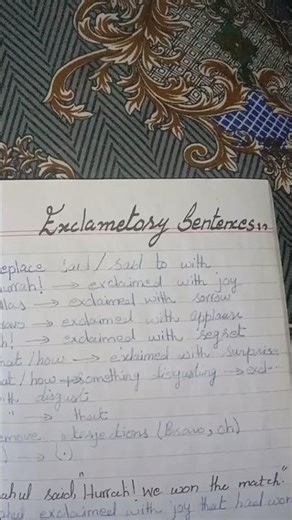 Exclametory Sentences
eplace said / said to with
urrah! → exclaimed with joy
las → exclaimed with sorrow
ravo → exclaimed with applause
h! → exclaimed with regret
hat / how → exclaimed with surprise
at / how → something disgusting → excl-
th disgust
" → that
emove interjections (Bravo, oh)
) → (.)
ahul said, "Hurrah! We won the match."
ahul exclaimed with joy that had won